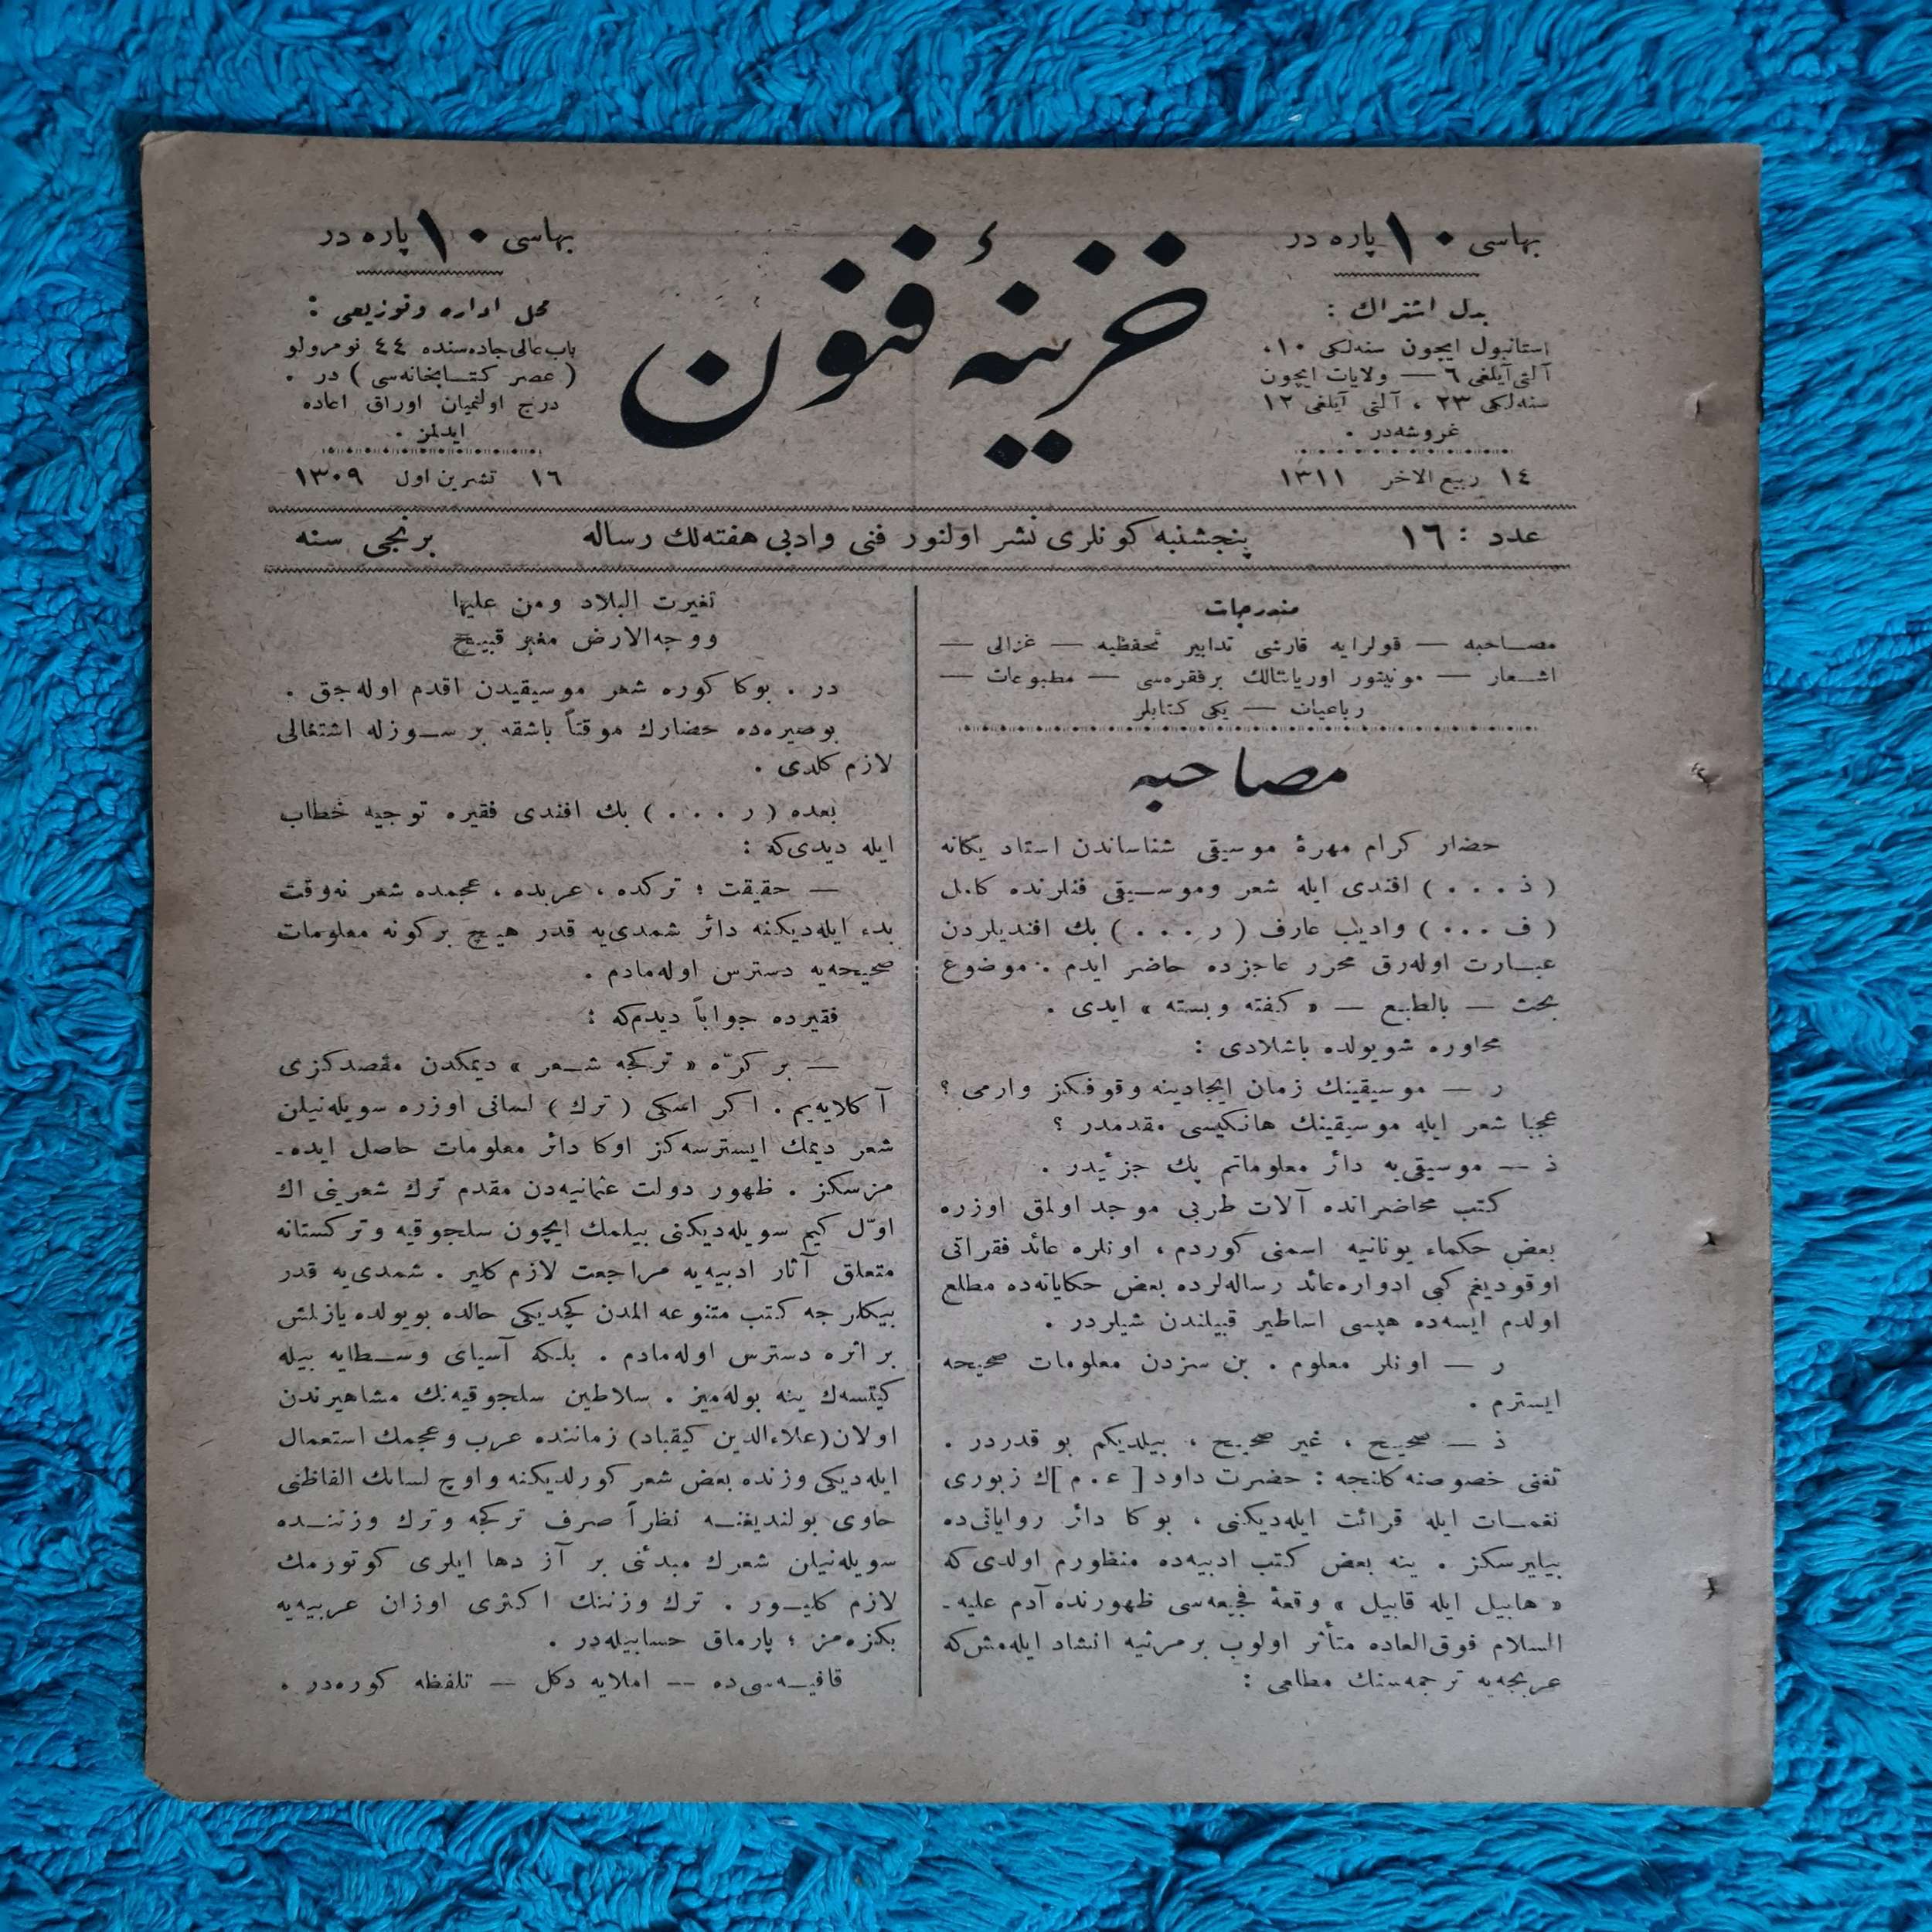 بهاسی ١٠ پاره در
بدل اشتراك :
استانبول ایچون سنه‌لكی ١٠،
آلتی‌آیلغی ٦ — ولایات ایچون
سنه‌لكی ٢٣ ، آلتی آیلغی ١٢
غروشه‌در .
١٤ ربیع الاخر ١٣١١
خزینهٔ فنون
بهاسی ١٠ پاره در
محل اداره وتوزیعی :
باب‌عالی‌جاده‌سنده ٤٤ نومرولو
( عصر كتـابخانه‌سی ) در .
درج اولنمیان اوراق اعاده
ایدلمز .
١٦ تشرین اول ١٣٠٩
عدد : ١٦
پنجشنبه كونلری نشر اولنور فنی وادبی هفته‌لك رساله
برنجی سنه
مندرجات
مصـاحبه — قولرایه قارشی تدابیر تحفظیه — غزالی —
اشـعار — مونیتور اوریانتالك برفقره‌سی — مطبوعات —
رباعیات — یكی كتابلر
مصاحبه
حضار كرام مهرهٔ موسیقی شناساندن استاد یكانه
( ذ . . . ) افندی ایله شعر وموسـیقی فنلرنده كامل
( ف . . . ) وادیب عارف ( ر . . . ) بك افندیلردن
عبـارت اوله‌رق محرر عاجزده حاضر ایدم . موضوع
بحث — بالطبع — « كفته وبسته » ایدی .
محاوره شویولده باشلادی :
ر — موسیقینك زمان ایجادینه وقوفكز وارمی ؟
عجبا شعر ایله موسیقینك هانكیسی مقدمدر ؟
ذ — موسیقی‌یه دائر معلوماتم پك جزئیدر .
كتب محاضراتده آلات طربی موجد اولمق اوزره
بعض حكماء یونانیه اسمنی كوردم ، اونلره عائد فقراتی
اوقودیغم كبی ادواره‌عائد رساله‌لرده بعض حكایاته‌ده مطلع
اولدم ایسه‌ده هپسی اساطیر قبیلندن شیلردر .
ر — اونلر معلوم . بن سزدن معلومات صحیحه
ایسترم .
ذ — صحیح ، غیر صحیح ، بیلدیكم بو قدردر .
تغنی خصوصنه كلنجه : حضرت داود [ ع . م ]ك زبوری
نغمـات ایله قرائت ایله‌دیكنی ، بوكا دائر روایاتی‌ده
بیلیرسكز . ینه بعض كتب ادبیه‌ده منظورم اولدی‌كه
« هابیل ایله قابیل » وقعهٔ فجیعه‌سی ظهورنده آدم علیه‌ـ
السلام فوق‌العاده متأثر اولوب برمرثیه انشاد ایله‌مش‌كه
عربجه‌یه ترجمه‌سنك مطلعی :
تغیرت البلاد ومن علیها
ووجه‌الارض مغبر قبیح
در . بوكا كوره شعر موسیقیدن اقدم اوله‌جق .
بوصیره‌ده حضارك موقتاً باشقه بر سـوزله اشتغالی
لازم كلدی .
بعده ( ر . . . ) بك افندی فقیره توجیه خطاب
ایله دیدی‌كه :
— حقیقت ؛ تركده ، عربده ، عجمده شعر نه‌وقت
بدء ایله‌دیكنه دائر شمدی‌یه قدر هیچ بركونه معلومات
صحیحه‌یه دسترس اوله‌مادم .
فقیرده جواباً دیدم‌كه :
— بر كرّه « تركجه شـعر » دیمكدن مقصدكزی
آكلایه‌یم . اكر اسكی ( ترك ) لسانی اوزره سویله‌نیلن
شعر دیمك ایسترسه‌كز اوكا دائر معلومات حاصل ایده‌ـ
مزسكز . ظهور دولت عثمانیه‌دن مقدم ترك شعرینی اك
اوّل كیم سویله‌دیكنی بیلمك ایچون سلجوقیه وتركستانه
متعلق آثار ادبیه‌یه مراجعت لازم كلیر . شمدی‌یه قدر
بیكلرجه كتب متنوعه المدن كچدیكی حالده بویولده یازلمش
بر اثره دسترس اوله‌مادم . بلـكه آسیای وسـطایه بیله
كیتسه‌ك ینه بوله‌میز . سلاطین سلجوقیه‌نك مشاهیرندن
اولان(علاءالدین كیقباد) زماننده عرب وعجمك استعمال
ایله‌دیكی وزنده بعض شعر كورلدیكنه واوچ لسانك الفاظنی
حاوی بولندیغنـه نظراً صرف تركجه وترك وزننـده
سویله‌نیلن شعرك مبدئنی بر آز دها ایلری كوتورمك
لازم كلیـور . ترك وزننك اكثری اوزان عربیه‌یه
بكزه‌مز ؛ پارماق حسابیله‌در .
قافیـه‌سی‌ده — املایه دكل — تلفظه كوره‌در .